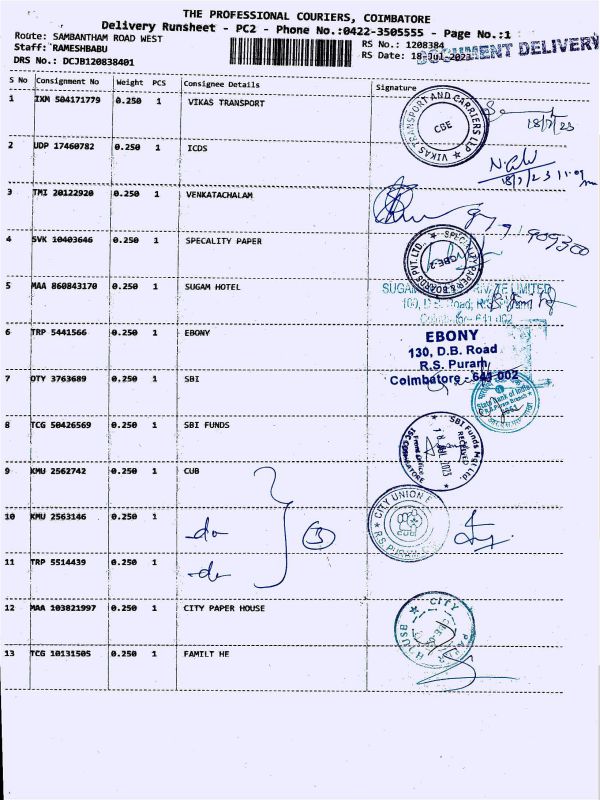 THE PROFESSIONAL COURIERS, COIMBATORE
Delivery Runsheet - PC2 - Phone No.:0422-3505555 - Page No.:1
Route: SAMBANTHAM ROAD WEST
RS No.: 1208384
DOCUMENT DELIVERY
Staff: RAMESHBABU
RS Date: 18-Jul-2023
DRS No.: DCJB120838401
S No Consignment No Weight PCS Consignee Details Signature
1 IXM 504171779 0.250 1 VIKAS TRANSPORT
VIKAS TRANSPORT AND CARRIERS LLP
CBE
18/7/23
2 UDP 17460782 0.250 1 ICDS
18/7/23
3 TMI 20122920 0.250 1 VENKATACHALAM
4 SVK 10403646 0.250 1 SPECALITY PAPER
SPECIALITY PAPERS & BOARDS PVT. LTD.
CBE-2
5 MAA 860843170 0.250 1 SUGAM HOTEL
SUGAM PRIVATE LIMITED
100, D.B. Road, R.S. Puram
Coimbatore - 641 002
6 TRP 5441566 0.250 1 EBONY
EBONY
130, D.B. Road
R.S. Puram
Coimbatore - 641 002
7 OTY 3763689 0.250 1 SBI
State Bank of India
R.S. Puram Branch
8 TCG 50426569 0.250 1 SBI FUNDS
SBI Funds Mgt Ltd.
RECEIVED
18 JUL 2023
Front Office
ISC COIMBATORE
9 KMU 2562742 0.250 1 CUB
CITY UNION
R.S. PURAM
10 KMU 2563146 0.250 1 -do-
3
11 TRP 5514439 0.250 1 -do-
12 MAA 103821997 0.250 1 CITY PAPER HOUSE
CITY
13 TCG 10131505 0.250 1 FAMILT HE